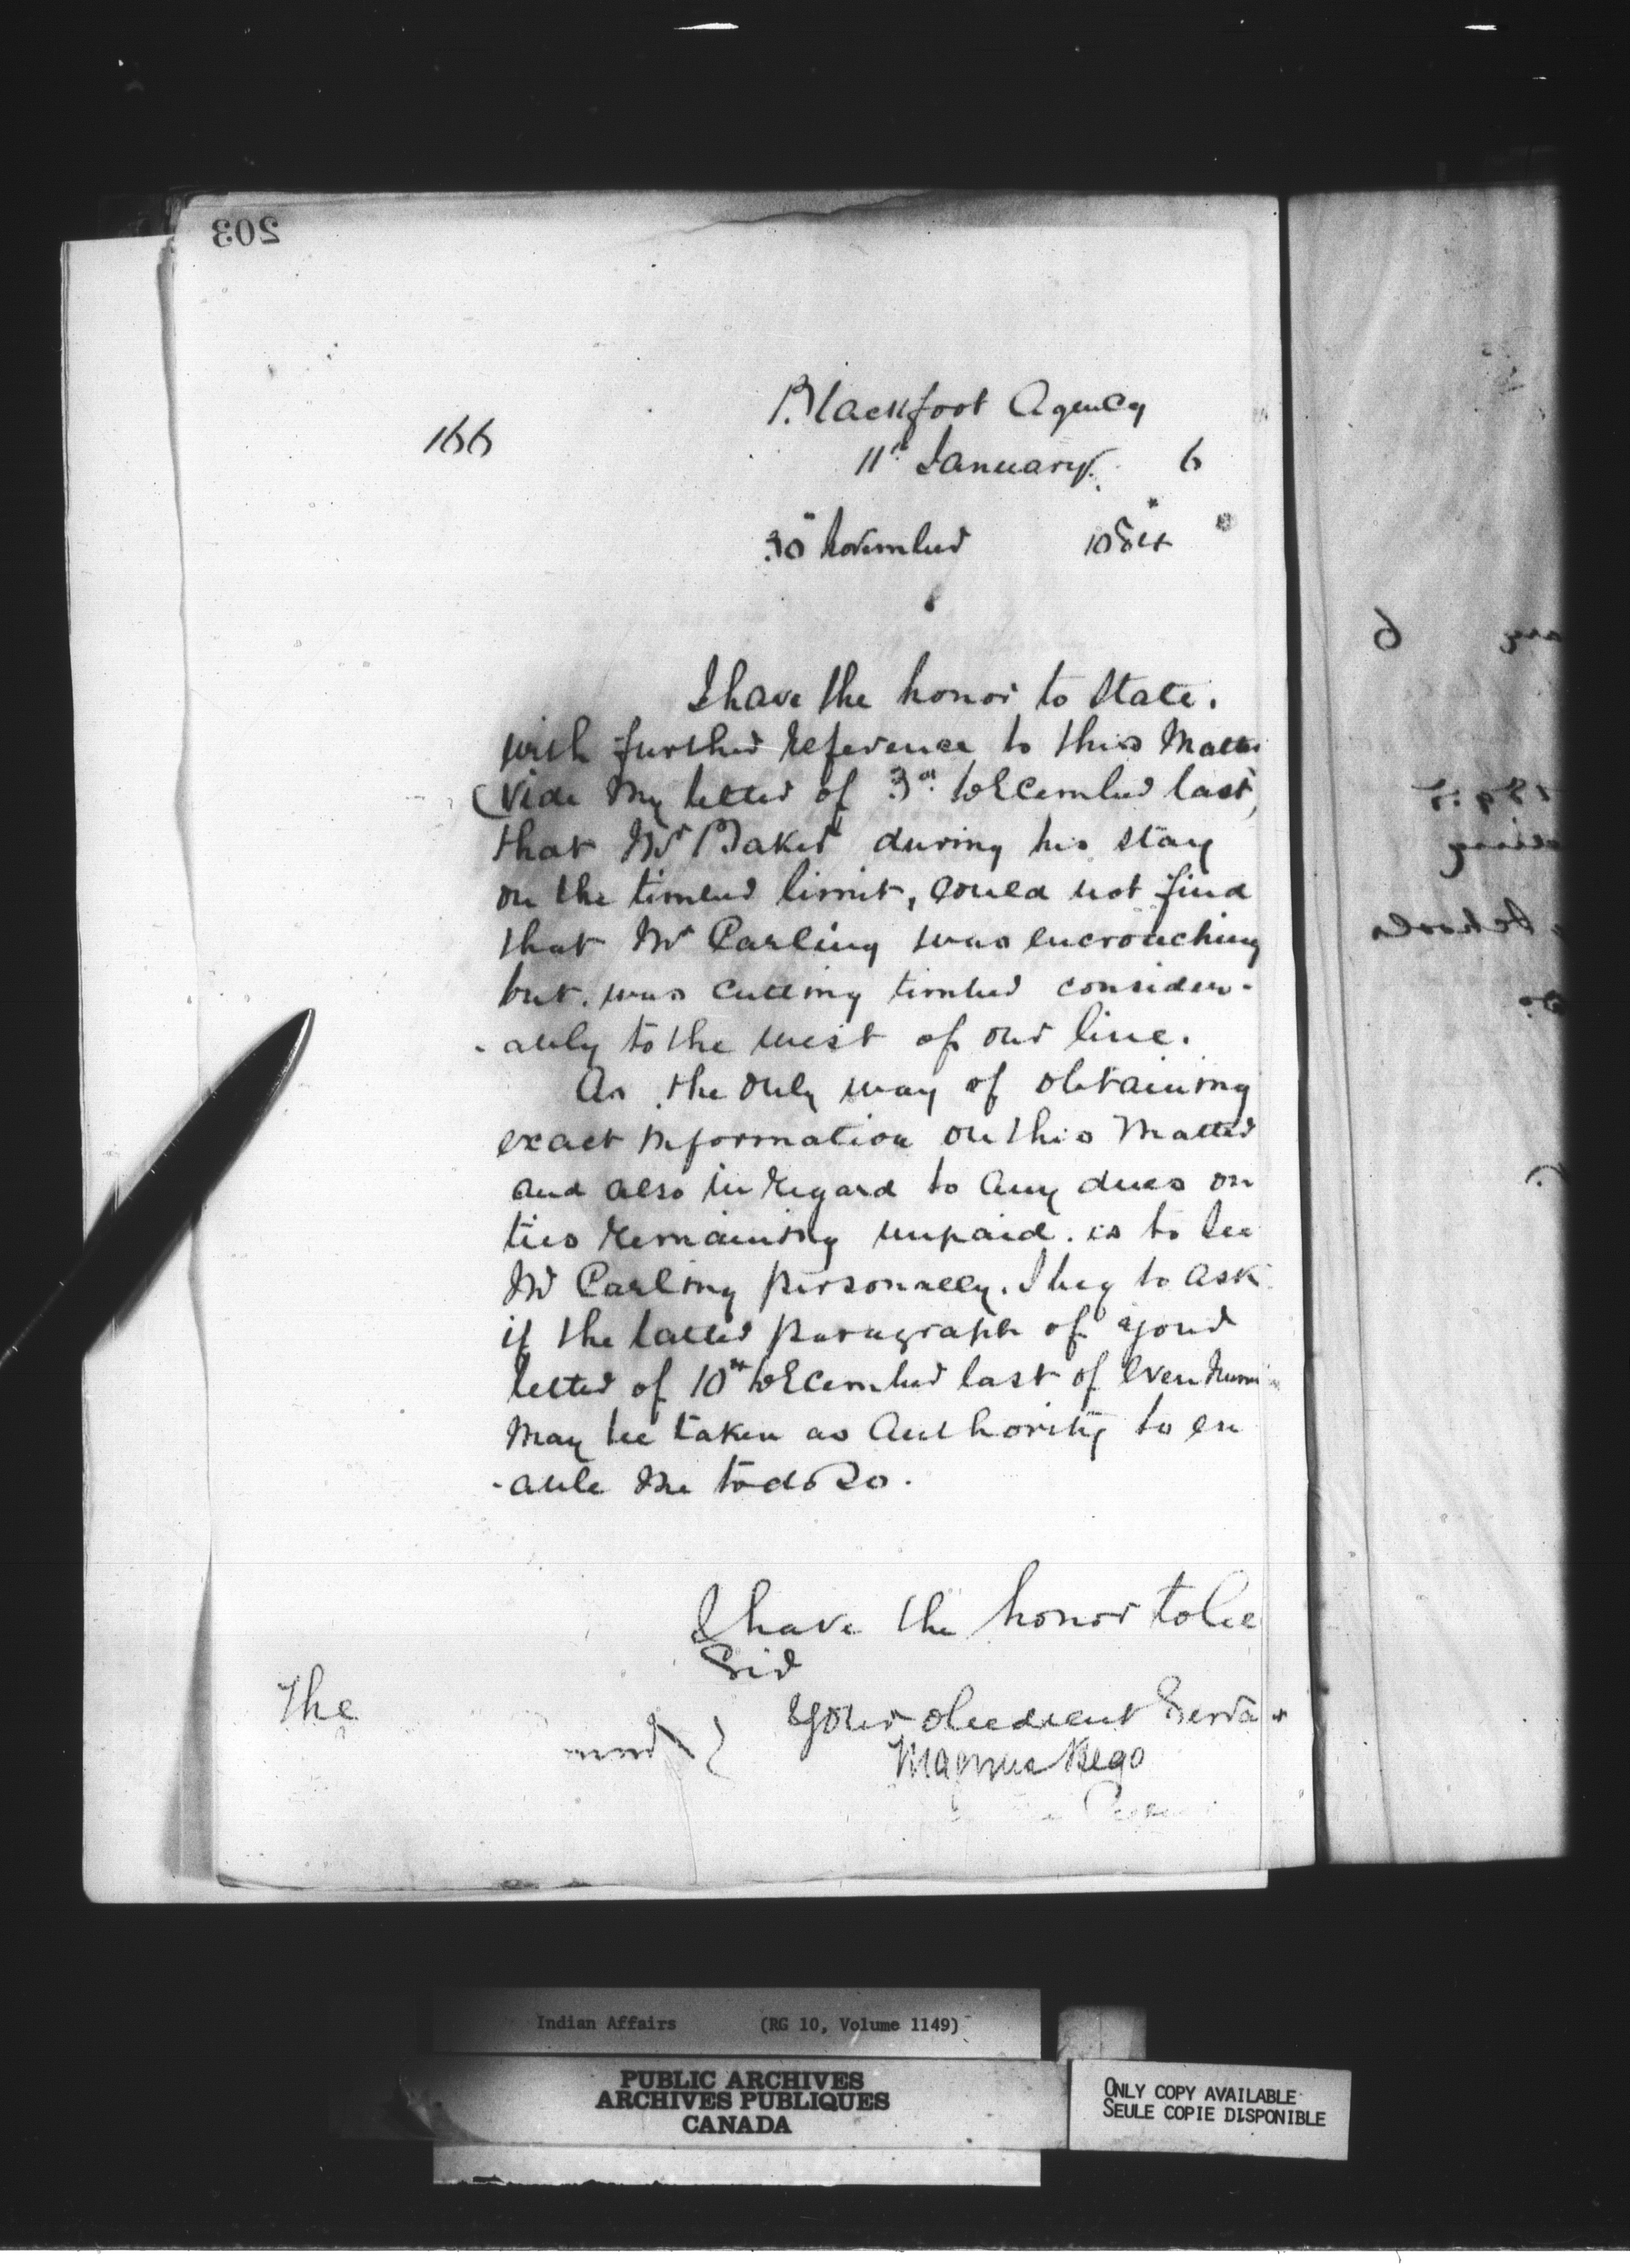 203
166
Blackfoot Agency
11th January 6
30th November
I have the honor to state.
with further reference to this Matter
(Vide My letter of 3rd December last,
that Mr Baker during his stay
on the timber limit, could not find
that Mr Carling was encroaching
but. was cutting timber consider-
-ably to the west of our line.
As the only way of obtaining
exact information on this Matter
and also in regard to any dues on
ties remaining unpaid. is to see
Mr Carling personally. I beg to ask
if the latter paragraph of your
letter of 10th December last of even
May be taken as Authority to en
-able me to do so.
I have the honor to be
Sir
The
Your obedient
Magnus Begg
6
Indian Affairs (RG 10, Volume 1149)
PUBLIC ARCHIVES
ARCHIVES PUBLIQUES
CANADA
ONLY COPY AVAILABLE
SEULE COPIE DISPONIBLE